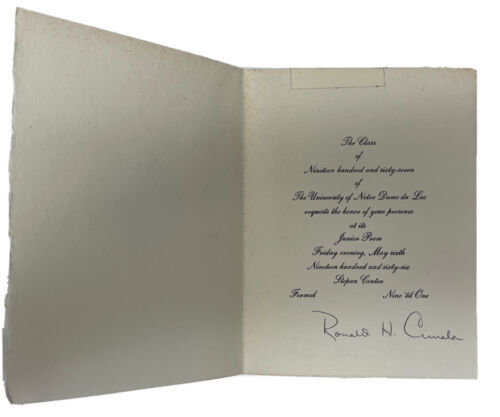 The Class
of
Nineteen hundred and sixty-seven
of
The University of Notre Dame du Lac
requests the honor of your presence
at its
Junior Prom
Friday evening, May sixth
Nineteen hundred and sixty-six
Stepan Center
Formal Nine 'til One
Ronald H. Cimala